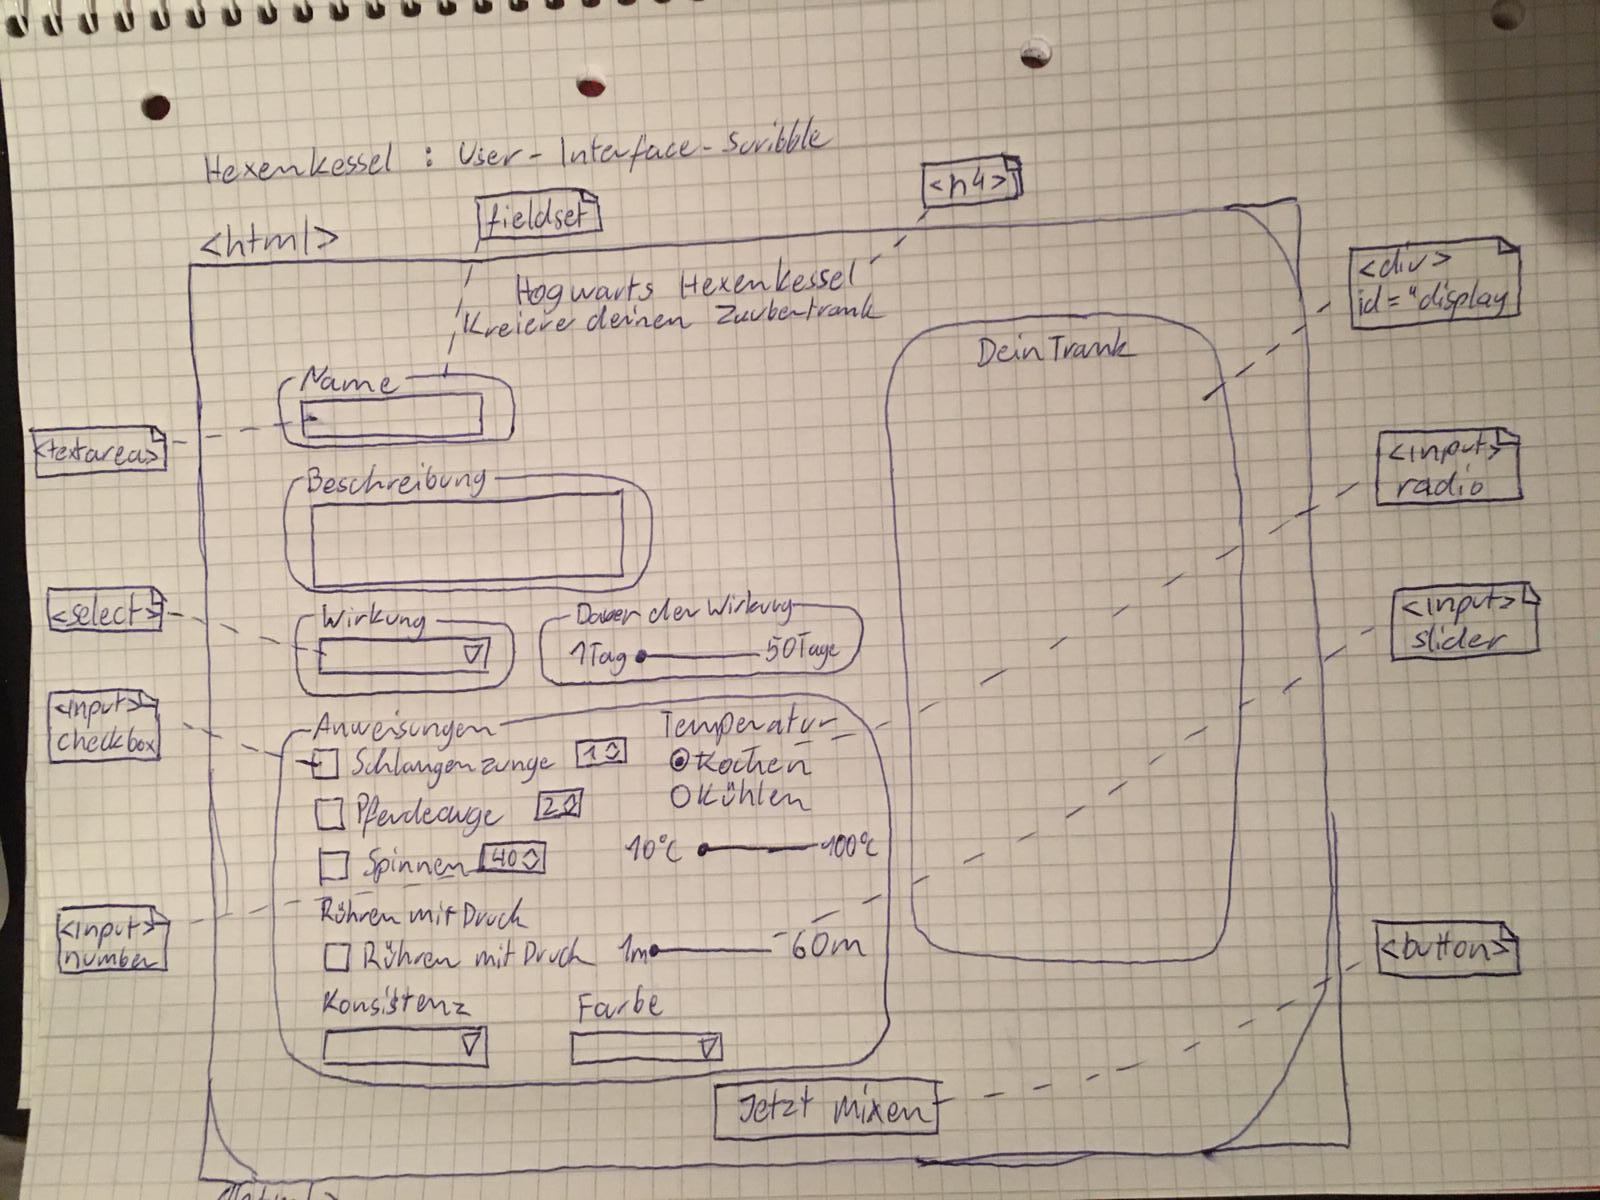 Hexenkessel : User-Interface-Scribble
<html>
fieldset
<h4>
Hogwarts Hexenkessel
Kreiere deinen Zaubertrank
<div>
id="display
Dein Trank
Name
<textarea>
Beschreibung
<input>
radio
<select>
Wirkung
Dauer der Wirkung
1Tag 50Tage
<input>
slider
<input>
checkbox
Anweisungen
Temperatur
Schlangenzunge 1
Kochen
Kühlen
Pferdeauge 2
Spinnen 40
10°C 100°C
<input>
number
Rühren mit Druck
Rühren mit Druck 1m 60m
<button>
Konsistenz Farbe
Jetzt mixen